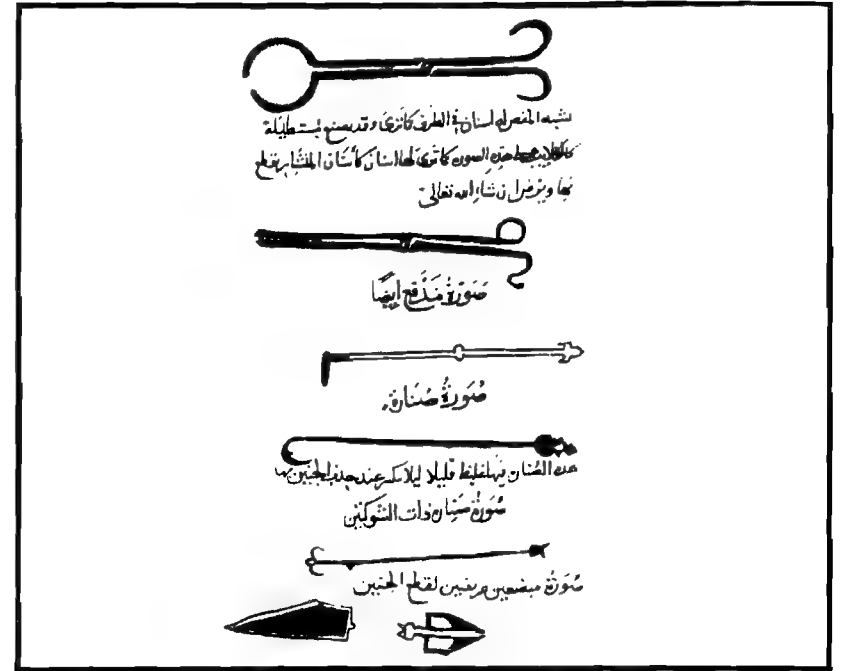 يشبه المقص له اسنان في الطرف كما ترى وقد يصنع مستطيلة
هذه الصورة كما ترى لها اسنان كأسنان المنشار يقطع
بها ويرض ان شاء الله تعالى
صورة مدفع ايضا
صورة صنارة
هذه الصنارة فيها غلظ قليلا ليلا تنكسر عند جذب الجنين بها
صورة صنارة ذات الشوكتين
صورة مبضعين عريضين لقطع الجنين